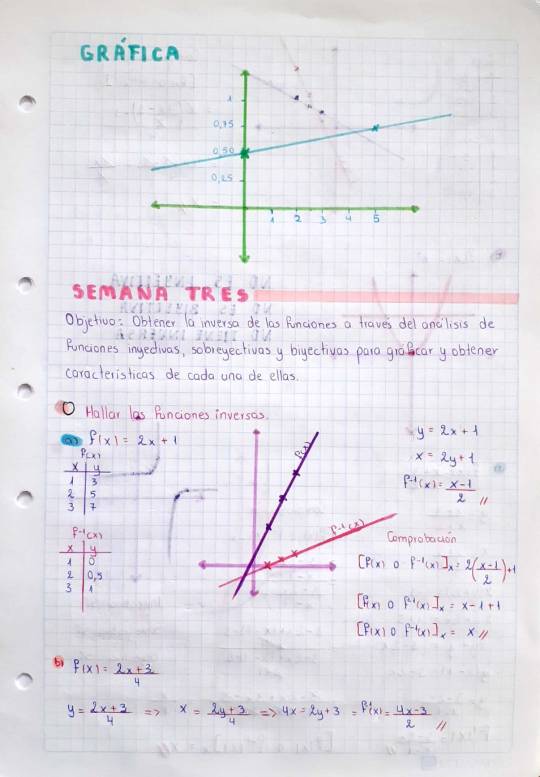 GRÁFICA
1
0,75
0,50
0,25
1 2 3 4 5
SEMANA TRES
Objetivo: Obtener la inversa de las funciones a través del análisis de
funciones inyedivas, sobreyectivas y biyectivas para graficar y obtener
características de cada una de ellas.
Hallar las funciones inversas.
a) f(x) = 2x + 1
f(x)
x y
1 3
2 5
3 7
f⁻¹(x)
x y
1 0
2 0,5
3 1
f(x)
f⁻¹(x)
y = 2x + 1
x = 2y + 1
f⁻¹(x) = x-1/2 //
Comprobación
[f(x) o f⁻¹(x)]x = 2(x-1/2)+1
[f(x) o f⁻¹(x)]x = x-1+1
[f(x) o f⁻¹(x)]x = x //
b) f(x) = 2x+3/4
y = 2x+3/4 => x = 2y+3/4 => 4x = 2y+3 = f⁻¹(x) = 4x-3/2 //